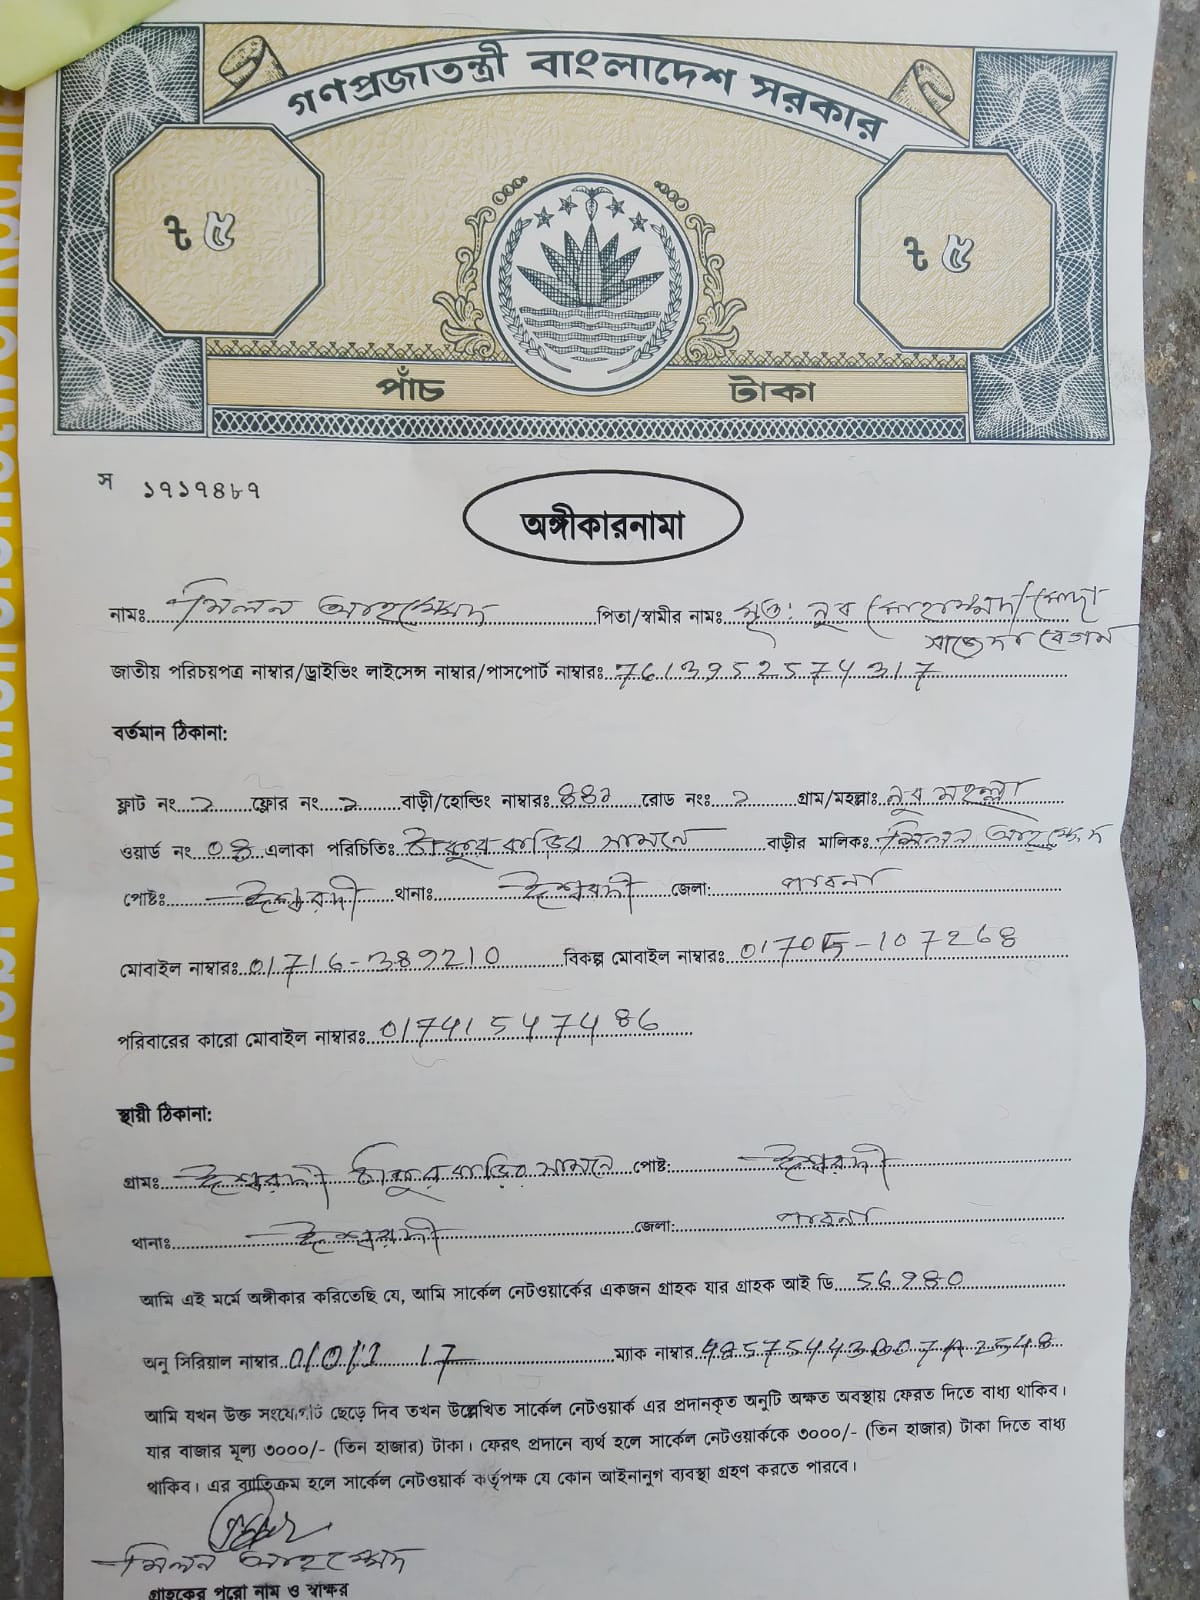 গণপ্রজাতন্ত্রী বাংলাদেশ সরকার
৳ ৫
৳ ৫
পাঁচ টাকা
স ১৭১৭৪৮৭
অঙ্গীকারনামা
নামঃ মিলন আহম্মেদ পিতা/স্বামীর নামঃ মৃত: নুর মোহাম্মদ/মোছা
সাজেদা বেগম
জাতীয় পরিচয়পত্র নাম্বার/ড্রাইভিং লাইসেন্স নাম্বার/পাসপোর্ট নাম্বারঃ 7613952574317
বর্তমান ঠিকানা:
ফ্লাট নং ফ্লোর নং বাড়ী/হোল্ডিং নাম্বারঃ রোড নংঃ গ্রাম/মহল্লাঃ নুর মহল্লা
ওয়ার্ড নং ০৪ এলাকা পরিচিতিঃ ঠাকুর বাড়ির সামনে বাড়ীর মালিকঃ মিলন আহম্মেদ
পোষ্টঃ ঈশ্বরদী থানাঃ ঈশ্বরদী জেলা: পাবনা
মোবাইল নাম্বারঃ 01716-389210 বিকল্প মোবাইল নাম্বারঃ 01705-107268
পরিবারের কারো মোবাইল নাম্বারঃ 01741547486
স্থায়ী ঠিকানা:
গ্রামঃ ঈশ্বরদী ঠাকুর বাড়ির সামনে পোষ্ট: ঈশ্বরদী
থানাঃ ঈশ্বরদী জেলা: পাবনা
আমি এই মর্মে অঙ্গীকার করিতেছি যে, আমি সার্কেল নেটওয়ার্কের একজন গ্রাহক যার গ্রাহক আই ডি
অনু সিরিয়াল নাম্বার ম্যাক নাম্বার
আমি যখন উক্ত সংযোগটি ছেড়ে দিব তখন উল্লেখিত সার্কেল নেটওয়ার্ক এর প্রদানকৃত অনুটি অক্ষত অবস্থায় ফেরত দিতে বাধ্য থাকিব।
যার বাজার মূল্য ৩০০০/- (তিন হাজার) টাকা। ফেরৎ প্রদানে ব্যর্থ হলে সার্কেল নেটওয়ার্ককে ৩০০০/- (তিন হাজার) টাকা দিতে বাধ্য
থাকিব। এর ব্যতিক্রম হলে সার্কেল নেটওয়ার্ক কর্তৃপক্ষ যে কোন আইনানুগ ব্যবস্থা গ্রহণ করতে পারবে।
মিলন আহম্মেদ
গ্রাহকের পুরো নাম ও স্বাক্ষর